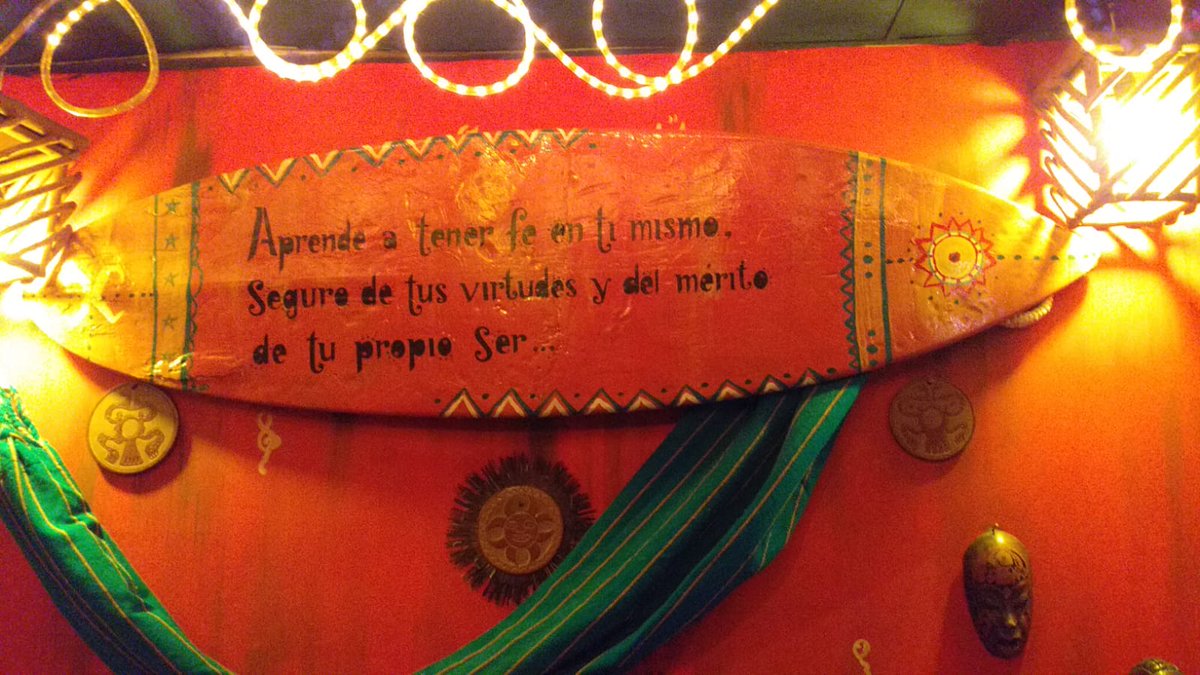 Aprende a tener fe en ti mismo.
Seguro de tus virtudes y del mérito
de tu propio Ser...